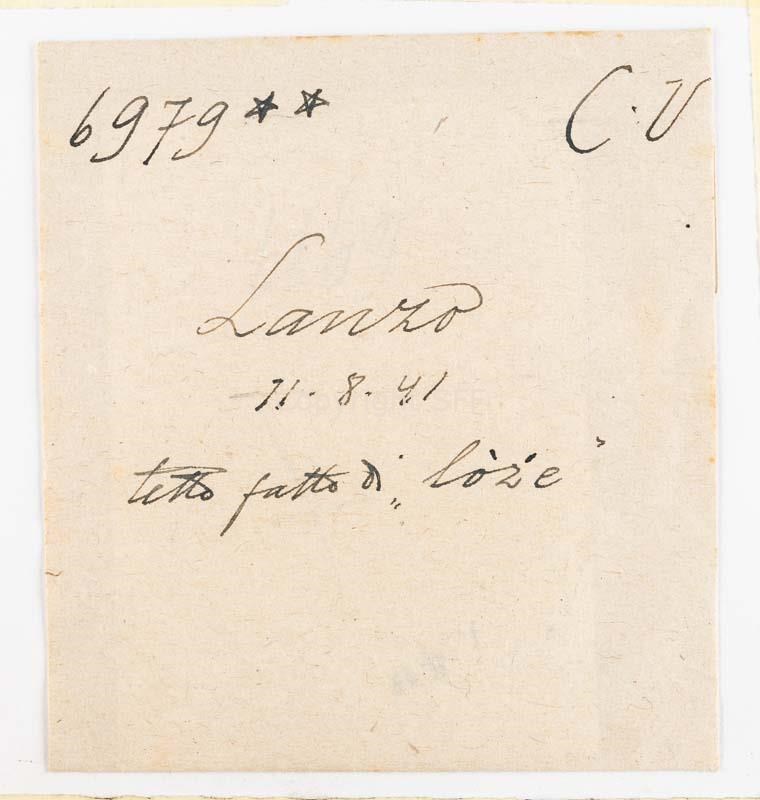 6979** C. V
Lanzo
11. 8. 41
tetto fatto di „lòże"